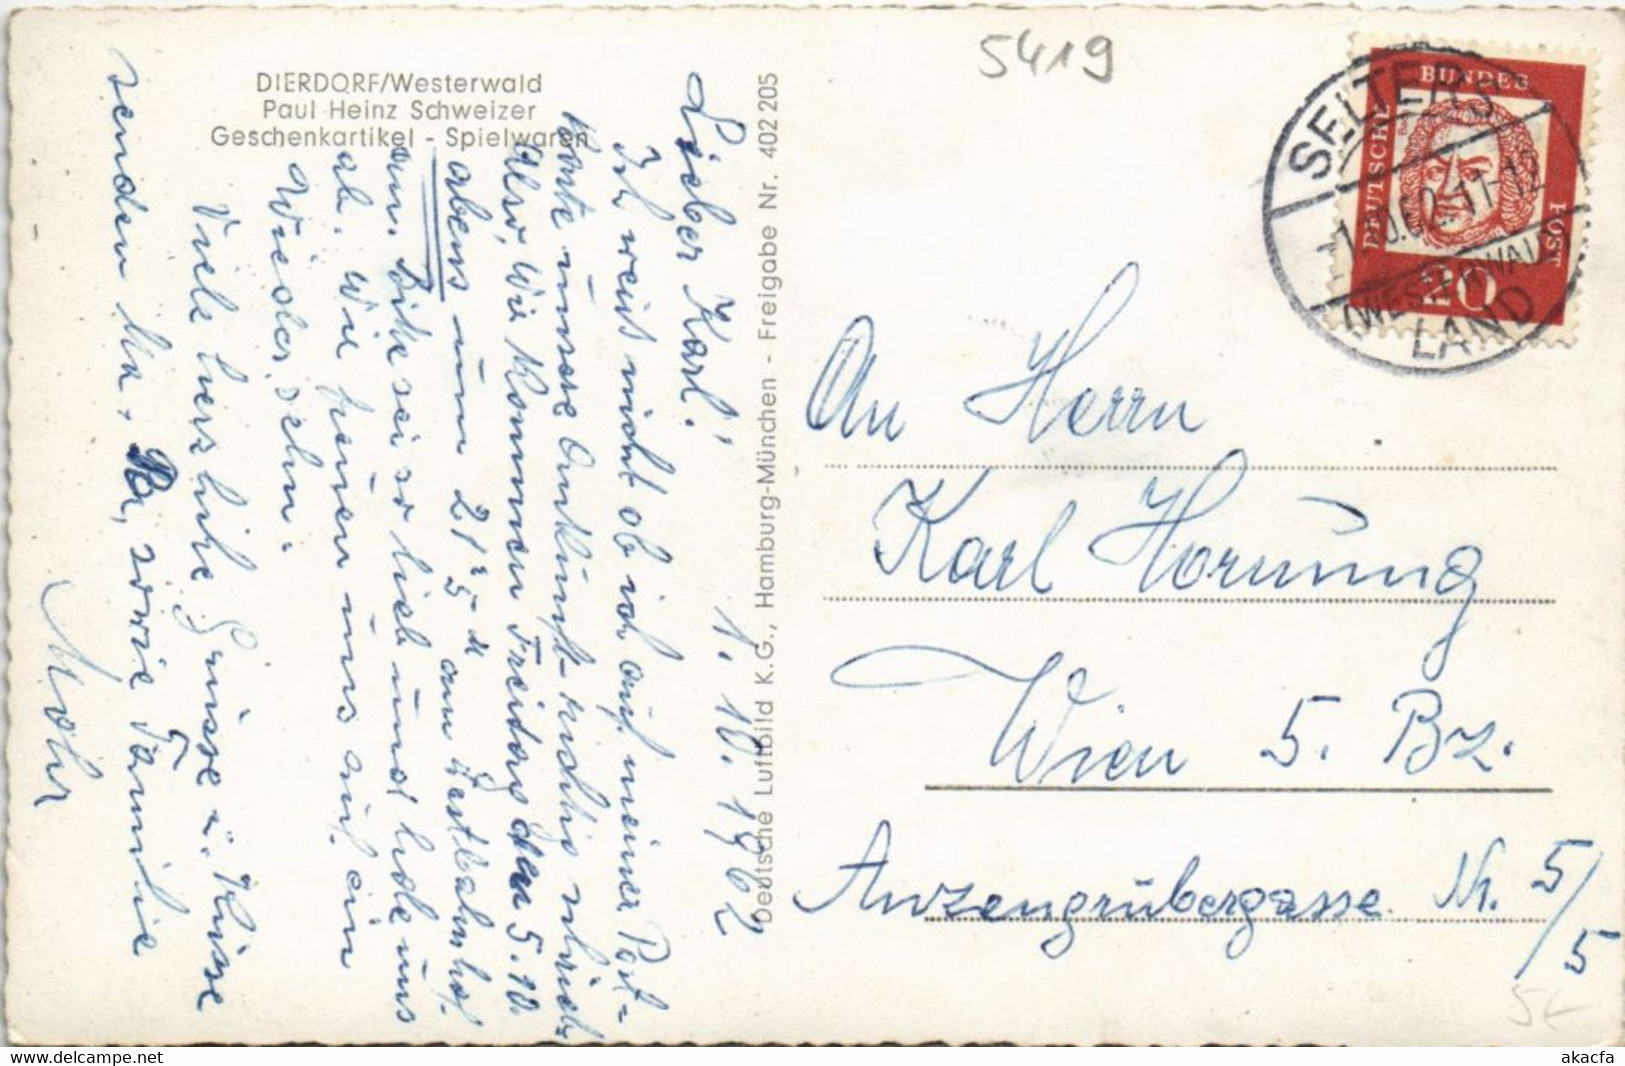 5419
DIERDORF/Westerwald
Paul Heinz Schweizer
Geschenkartikel - Spielwaren
Deutsche Luftbild K.G., Hamburg-München - Freigabe Nr. 402 205
1. 10. 1962
Lieber Karl!
Ich weis nicht ob ich auf meiner Post-
karte unsere Ankunft richtig schrieb
Also, wir kommen Freitag den 5.10.
abens um 21 25 am Westbahnhof
an. Bitte sei so lieb und hole uns
ab. Wir freuen uns auf ein
Wiedersehn.
Viele herzliche Grüsse u. Küsse
senden Ma, Pa, sowie Familie
Mohr
BUNDES
DEUTSCHE
POST
20
SELTERS
-1.10.62.11-12
(WESTERWALD)
LAND
An Herrn
Karl Hornung
Wien 5. Bz.
Anzengrübergasse Nr. 5/5
delcampe.net
akacfa